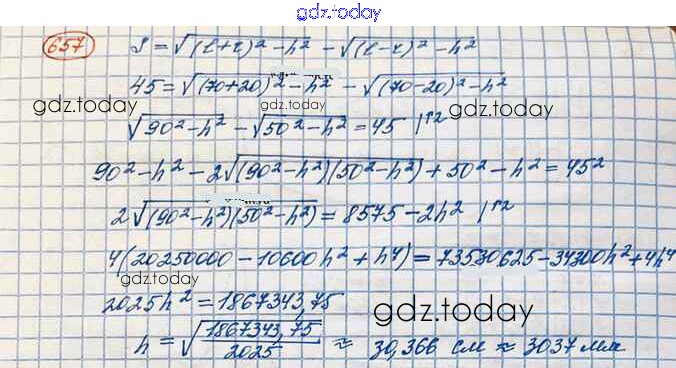 gdz.today
657 S = √(l+r)² - h² - √(l-r)² - h²
45 = √(70+20)² - h² - √(70-20)² - h²
gdz.today gdz.today gdz.today
√90² - h² - √50² - h² = 45 |↑2
90² - h² - 2√(90²-h²)(50²-h²) + 50² - h² = 45²
2√(90²-h²)(50²-h²) = 8575 - 2h² |↑2
4(20250000 - 10600h² + h⁴) = 73530625 - 34300h² + 4h⁴
gdz.today
2025h² = 1867343,75
gdz.today
h = √1867343,75/2025 ≈ 30,366 см ≈ 3037 мм